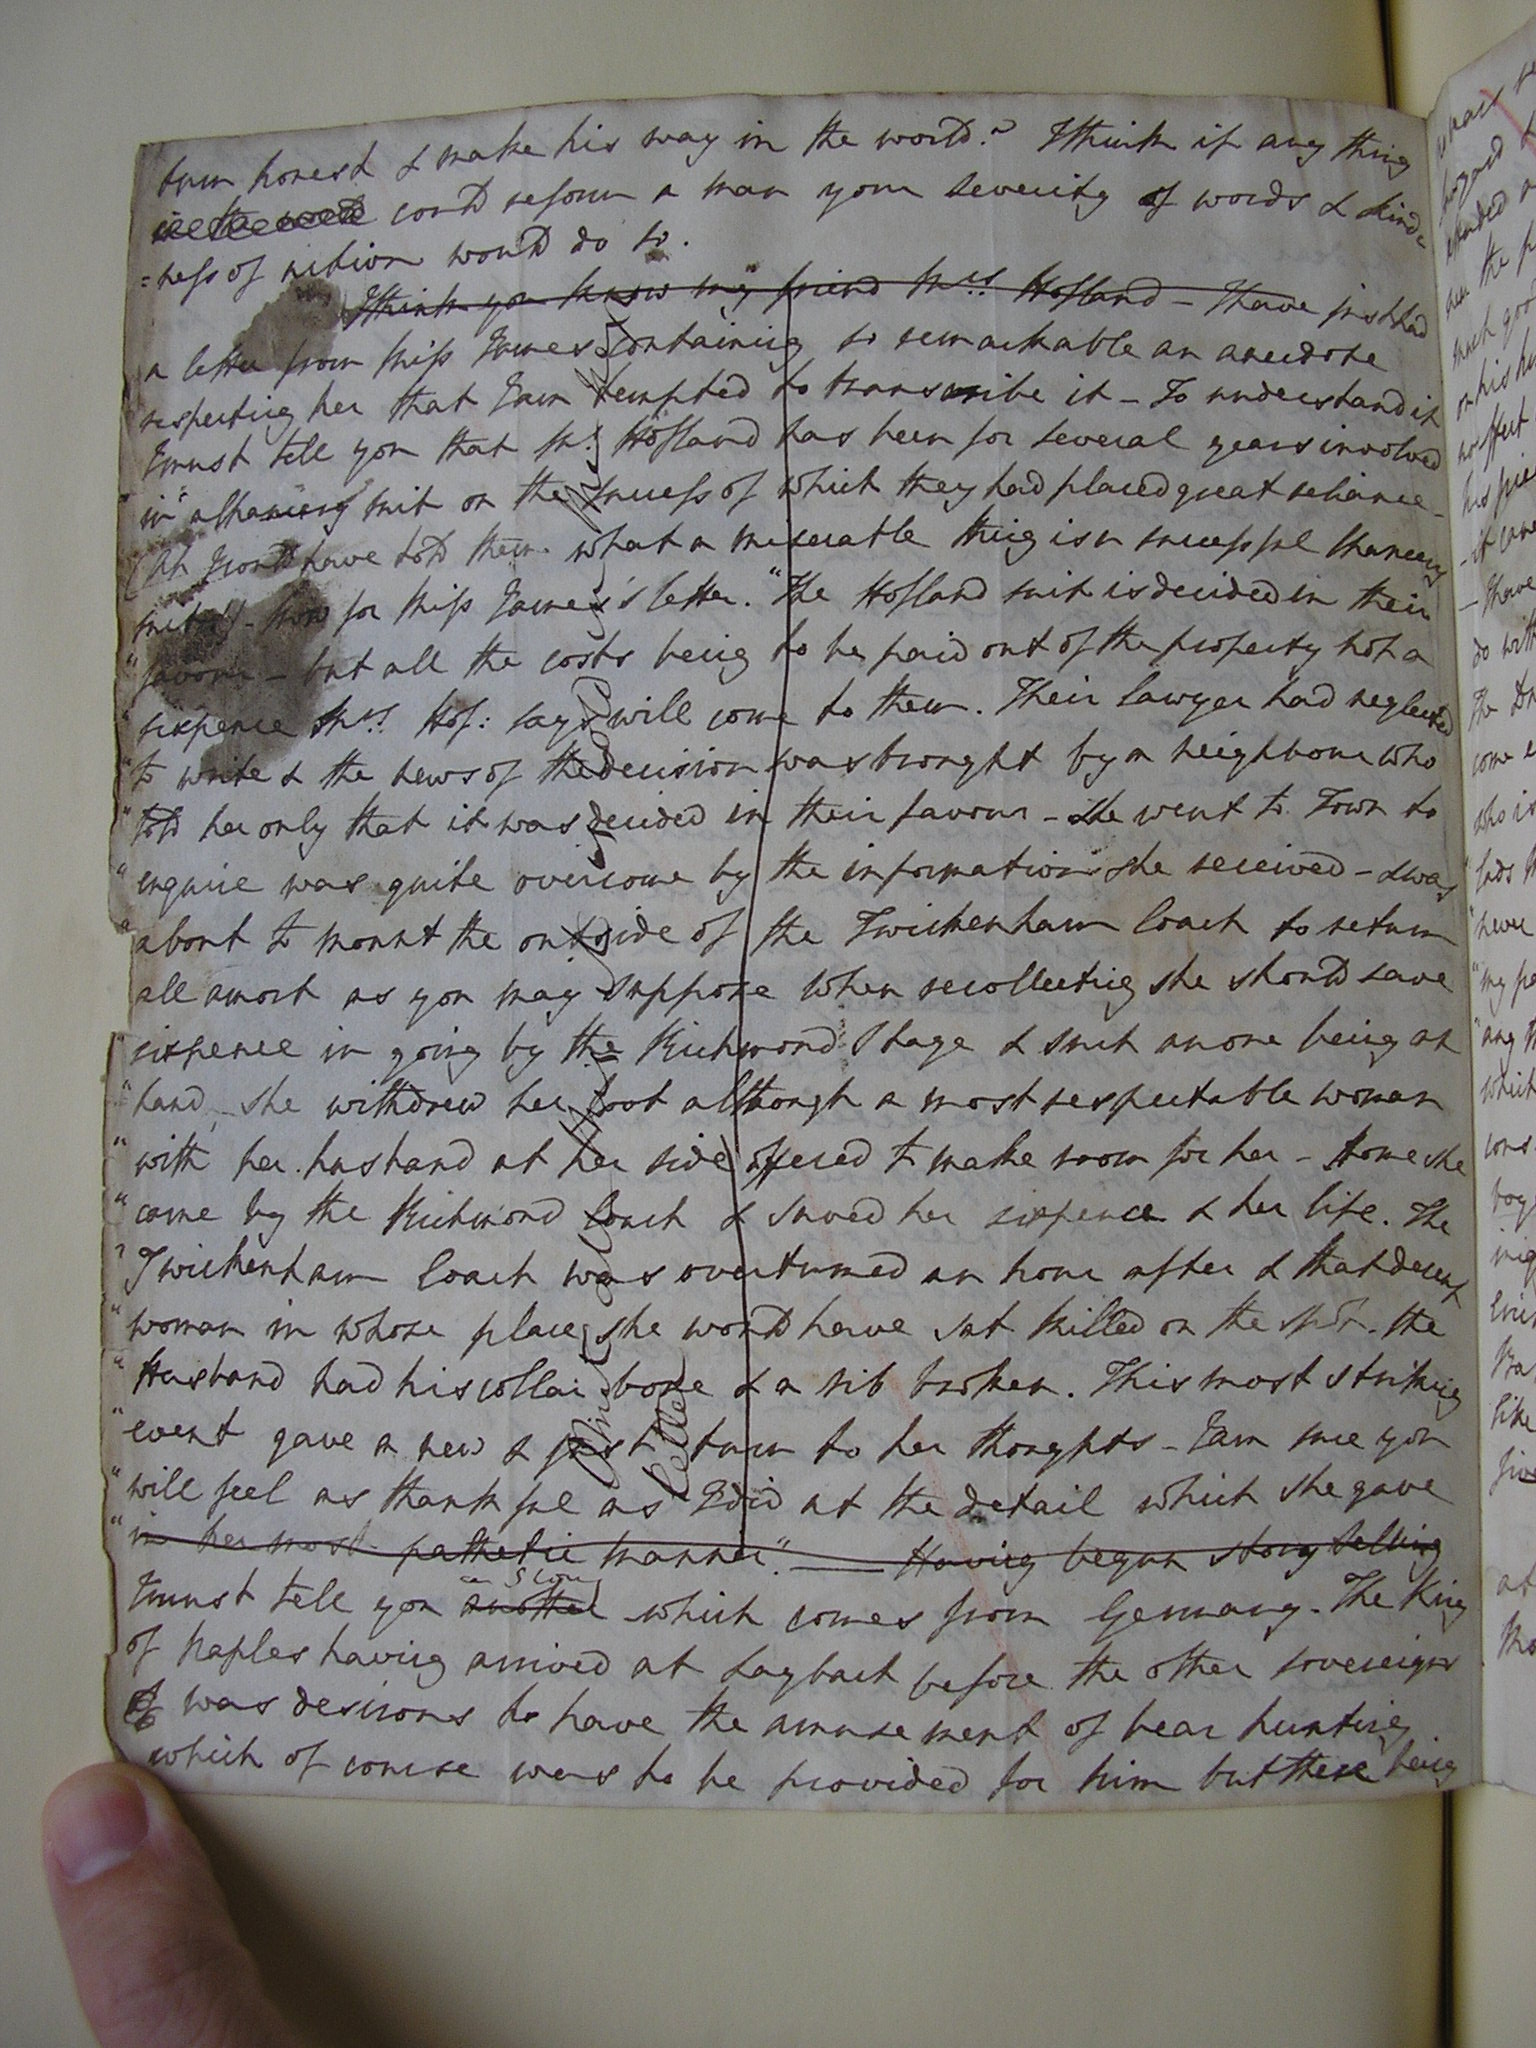 turn honest & make his way in the world? I think if any thing
in the world could reform a man your severity of words & kind
=ness of action would do so.
I think you know my friend Mrs. Hofland – I have just had
a letter from Miss James containing so remarkable an anecdote
respecting her that I am tempted to transcribe it – To understand it
I must tell you that Mr. Hofland has been for several years involved
in a Chancery suit on the success of which they had placed great reliance –
(Ah I could have told them what a miserable thing is a successful Chancery
suit!) – Now for Miss James's letter. "The Hofland suit is decided in their
"favour – but all the costs being to be paid out of the property not a
"sixpence Mrs. Hof: says will come to them. Their Lawyer had neglected
"to write & the news of the decision was brought by a neighbour who
"told her only that it was decided in their favour – She went to Town to
"enquire was quite overcome by the information she received – & was
"about to mount the outside of the Twickenham Coach to return
all amort as you may suppose when recollecting she should save
"sixpence in going by the Richmond Stage & such an one being at
"hand, she withdrew her foot although a most respectable woman
"with her husband at her side offered to make room for her – Home she
"came by the Richmond Coach & saved her sixpence & her life. The
"Twickenham Coach was overturned an hour after & that decent
"woman in whose place she would have sat killed on the spot. the
"Husband had his collar bone & a rib broken. This most striking
"event gave a new & just turn to her thoughts – I am sure you
"will feel as thankful as I did at the detail which she gave
"in her most pathetic manner." — Having begun story telling
I must tell you another which comes from Germany. The King
of Naples having arrived at Laybach before the other sovereigns
& was desirous to have the amusement of bear hunting
which of course was to be provided for him but there being
letter